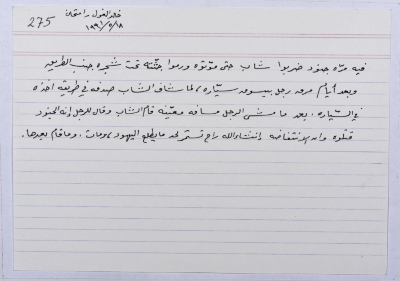 275
خالد الغول رامتحان
١٨/٩/١٩٩١
فيه مرّه جنود ضربوا شاب حتى موّتوه ورموا جثّته تحت شجره جنب الطريق
وبعد أيام مرّ رجل بيسوق سيّاره، لما شاف الشاب صدفه في طريقه اخذه
في السيّاره، بعد ما مشى الرجل مسافه معيّنه قام الشاب وقال للرجل إنه الجنود
قتلوه وانه الانتفاضه إنشاءالله راح تستمر لحد ما يطلع اليهود، ومات. وما قام بعدها.